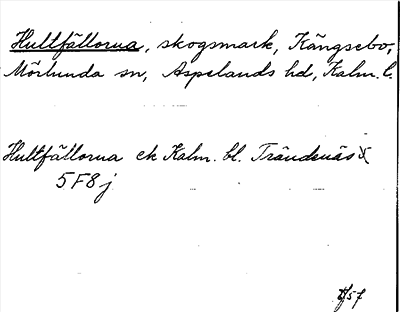 Hultfällorna, skogsmark, Kängsebo,
Mörlunda sn, Aspelands hd, Kalm. l.
Hultfällorna ek Kalm. bl. Trändenäs
5F8j